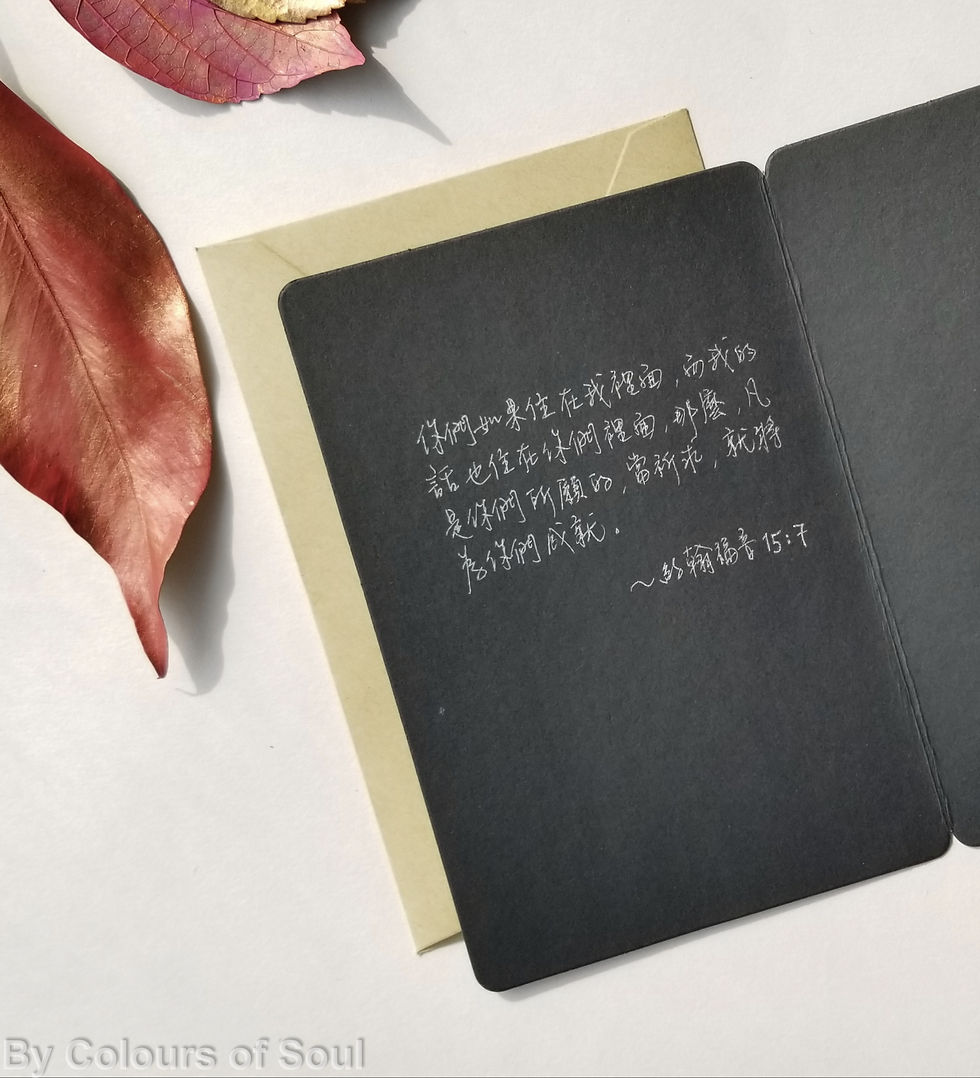 你們如果住在我裡面，而我的
話也住在你們裡面，那麼，凡
是你們所願的，當祈求，就將
為你們成就。
～約翰福音 15:7
By Colours of Soul